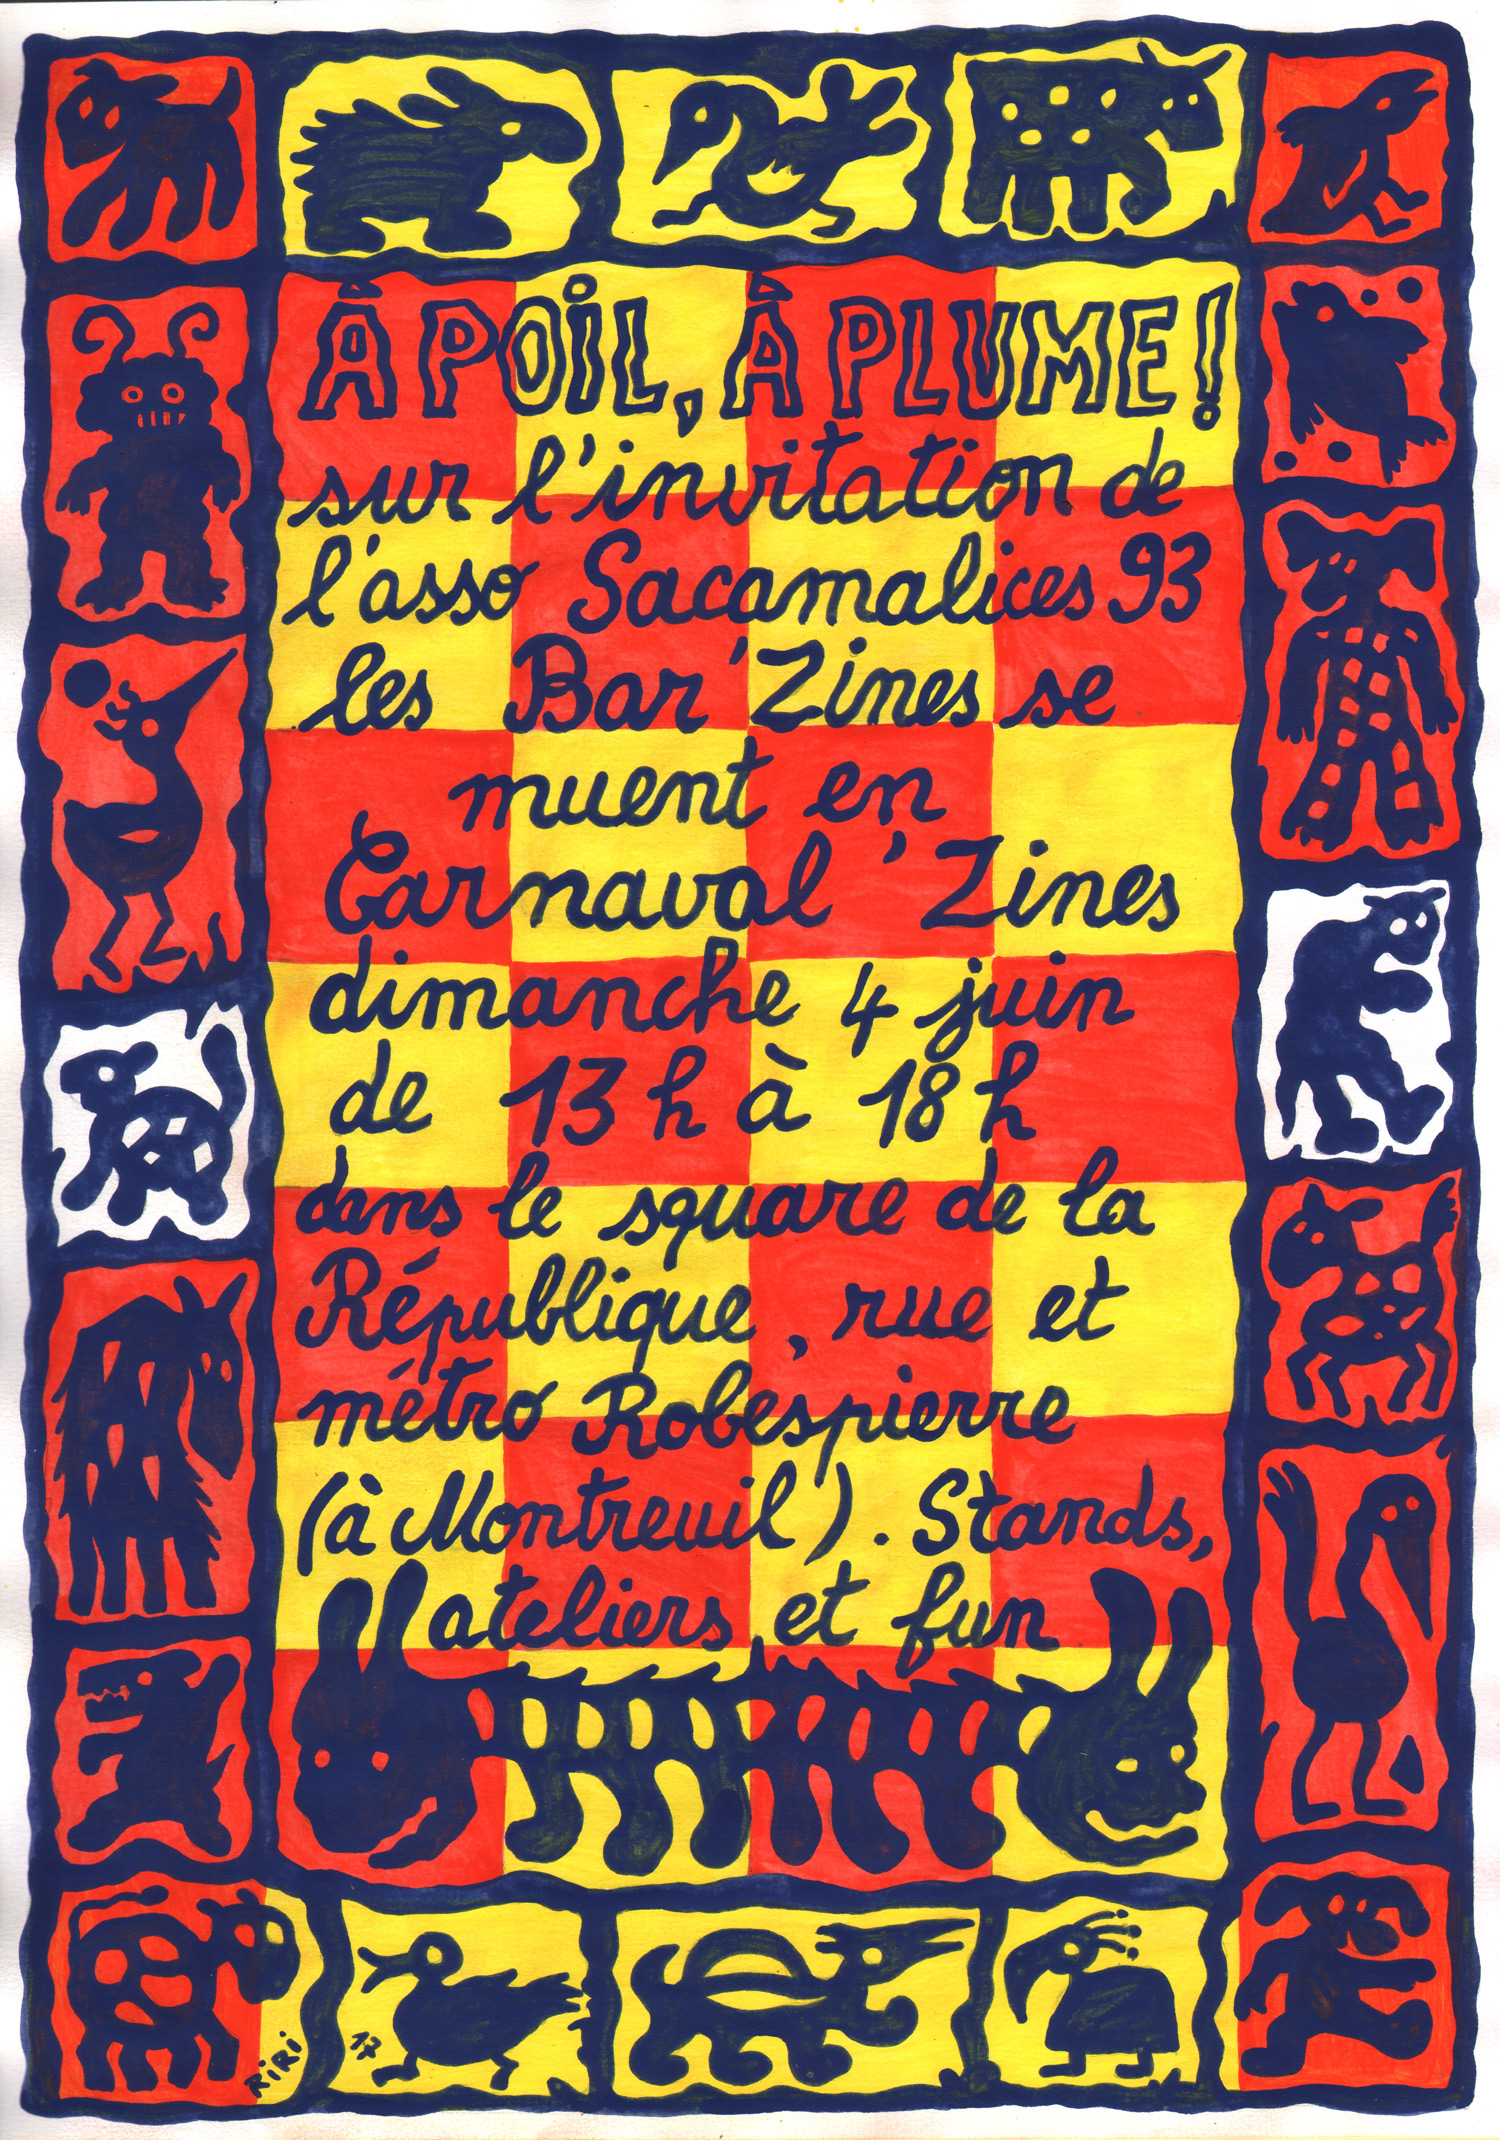 À POiL, À PLUME!
sur l'invitation de
l'asso Sacamalices 93
les Bar'Zines se
muent en
Carnaval'Zines
dimanche 4 juin
de 13h à 18h
dans le square de la
République, rue et
métro Robespierre
(à Montreuil). Stands,
ateliers et fun
RiRi 17